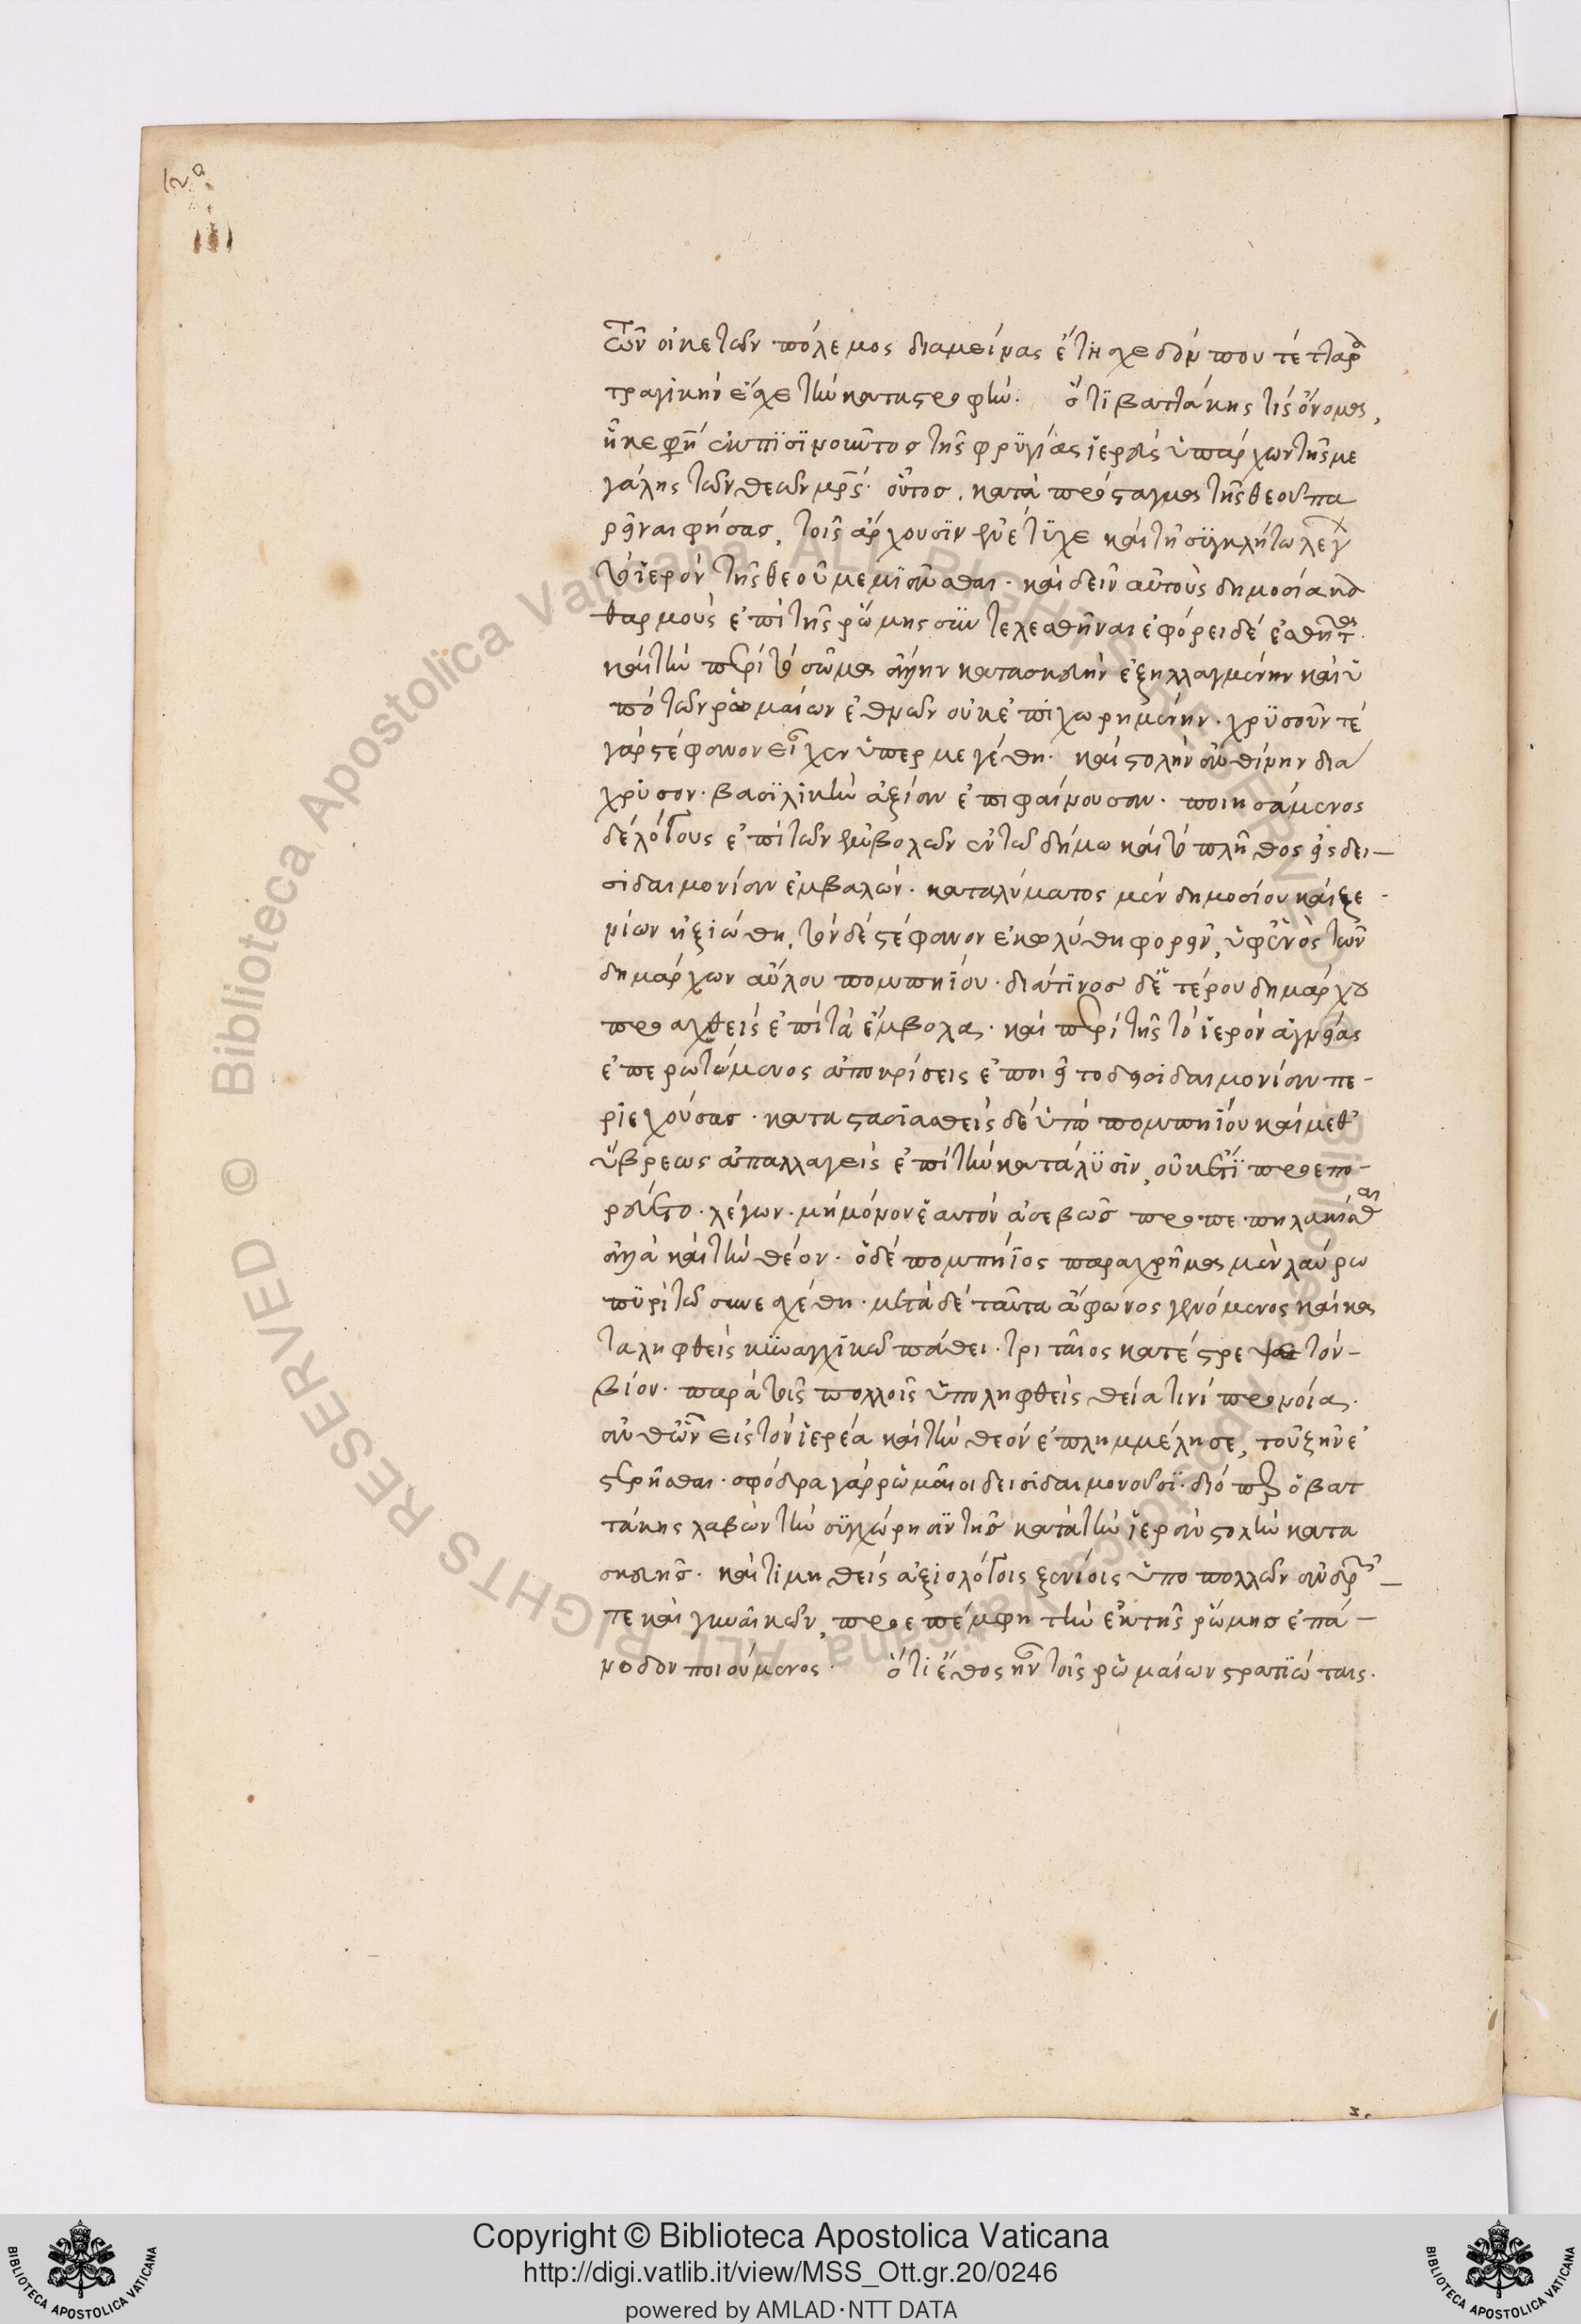 τῶν οἰκετῶν πόλεμος διαμείνας ἔτη σχεδόν που τέτταρα
τραγικὴν ἔσχε τὴν καταστροφήν. ὅτι βαττάκης τίς ὄνομα,
ἧκε φησὶν ἐκ πισινοῦντος τῆς φρυγίας ἱερεὺς ὑπάρχων τῆς με
γάλης τῶν θεῶν μρ̅ς. οὗτος κατὰ πρόσταγμα τῆς θεοῦ πα
ρεῖναι φήσας, τοῖς ἄρχουσιν ἐνέτυχε καὶ τῇ συγκλήτω λέγων
τὸ ἱερὸν τῆς θεοῦ μεμιᾶνσθαι. καὶ δεῖν αὐτοὺς δημοσία κα
θαρμοὺς ἐπὶ τῆς ῥώμης συντελεσθῆναι ἐφόρει δὲ ἐσθῆτα.
καὶ τὴν περὶ τὸ σῶμα ἄλλην κατασκευὴν ἐξηλλαγμένην καὶ ὑ
πὸ τῶν ῥωμαίων ἐθνῶν οὐκ ἐπιχωρημένην. χρυσοῦν τε
γὰρ στέφανον εἶχεν ὑπερμεγέθη. καὶ στολὴν ἀνθίνην διά
χρυσον. βασιλικὴν ἀξίαν ἐπιφαίνουσαν. ποιησάμενος
δὲ λόγους ἐπὶ τῶν ἐμβόλων ἐν τῶ δήμω καὶ τὸ πλῆθος εἰς δει-
σιδαιμονίαν ἐμβαλών. καταλύματος μὲν δημοσίου καὶ ξε-
νίων ἠξιώθη, τὸν δὲ στέφανον ἐκωλύθη φορεῖν, ὑφ' ἑνὸς τῶν
δημάρχων αὔλου πομπηίου. διά τινος δ' ἑτέρου δημάρχου
προαχθεὶς ἐπὶ τὰ ἔμβολα. καὶ περὶ τῆς τὸ ἱερὸν ἁγνείας
ἐπερωτώμενος ἀποκρίσεις ἐποιεῖτο δεισιδαιμονίαν πε-
ριεχούσας. καταστασιασθεὶς δὲ ὑπὸ πομπηίου καὶ μεθ'
ὕβρεως ἀπαλλαγεὶς ἐπὶ τὴν κατάλυσιν, οὐκέτι προεπο-
ρεύετο. λέγων. μὴ μόνον ἑαυτὸν ἀσεβῶς προπεπηλακίσθαι
ἀλλὰ καὶ τὴν θεόν. ὁ δὲ πομπήιος παραχρῆμα μὲν λαύρω
πυρετῶ συνεσχέθη. μετὰ δὲ ταῦτα ἄφωνος γενόμενος καὶ κα
ταληφθεὶς κυναγχικῶ πάθει. τριταῖος κατέστρεψε τὸν-
βίον. παρὰ τοῖς πολλοῖς ὑποληφθεὶς θεία τινὶ προνοία.
ἀνθ' ὧν εἰς τὸν ἱερέα καὶ τὴν θεὸν ἐπλημμέλησε, τοῦ ζῆν ἐ
στερῆσθαι. σφόδρα γὰρ ῥωμαῖοι δεισιδαιμονοῦσι. διόπερ ὁ βατ
τάκης λαβὼν τὴν συγχώρησιν τῆς κατὰ τὴν ἱερὰν στολὴν κατα
σκευῆς. καὶ τιμηθεὶς ἀξιολόγοις ξενίοις ὑπὸ πολλῶν ἀνδρῶν-
τε καὶ γυναικῶν, προεπέμφη τὴν ἐκ τῆς ῥώμης ἐπά-
νοδον ποιούμενος. ὅτι ἔθος ἦν τοῖς ῥωμαίων στρατιώταις.
Copyright © Biblioteca Apostolica Vaticana
http://digi.vatlib.it/view/MSS_Ott.gr.20/0246
powered by AMLAD·NTT DATA